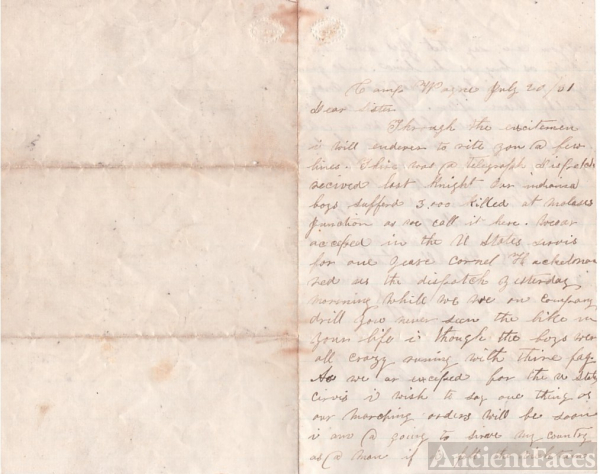 Camp Wayne July 20/61
Dear Sister
Through the excitemen
i will endever to rite you a few
lines. Thire was a telegraph Dispatch
recived last Knight Our indiana
boys sufferd 3,000 killed at
junction as we call it here. We ar
accepted in the U States servis
for one yeare Cornel
red us the dispatch yesterday
morning while we we on company
drill you never seen the like in
your life i though the boys wer
all crazy runing with thire
As we ar excepted for the u State
Cirvis i wish to say one thing as
our marching orders will be soon
i am a going to sirve my country
as a man if
AncientFaces